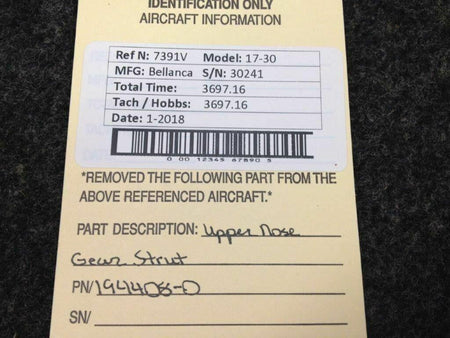 IDENTIFICATION ONLY
AIRCRAFT INFORMATION
Ref N: 7391V Model: 17-30
MFG: Bellanca S/N: 30241
Total Time: 3697.16
Tach / Hobbs: 3697.16
Date: 1-2018
0 00 12345 67890 5
*REMOVED THE FOLLOWING PART FROM THE
ABOVE REFERENCED AIRCRAFT.*
PART DESCRIPTION: Upper Nose
Gear Strut
PN/194408-0
SN/